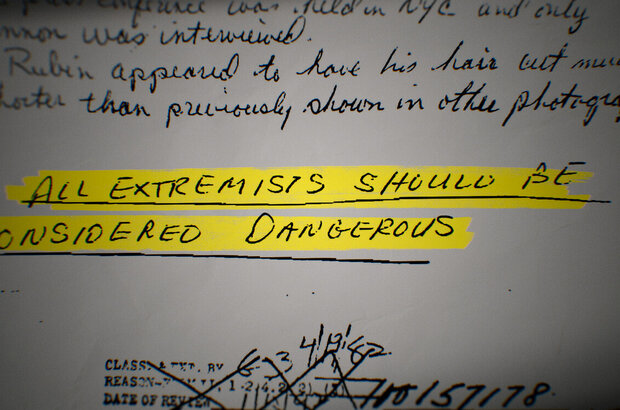 press conference was held in NYC and only
ennon was interviewed.
Rubin appeared to have his hair cut muc
horter than previously shown in other photogra
ALL EXTREMISTS SHOULD BE
ONSIDERED DANGEROUS
CLASS. & EXT. BY 6-3 4/13/82
REASON- 1-2.4.2
DATE OF REVIEW 110157178